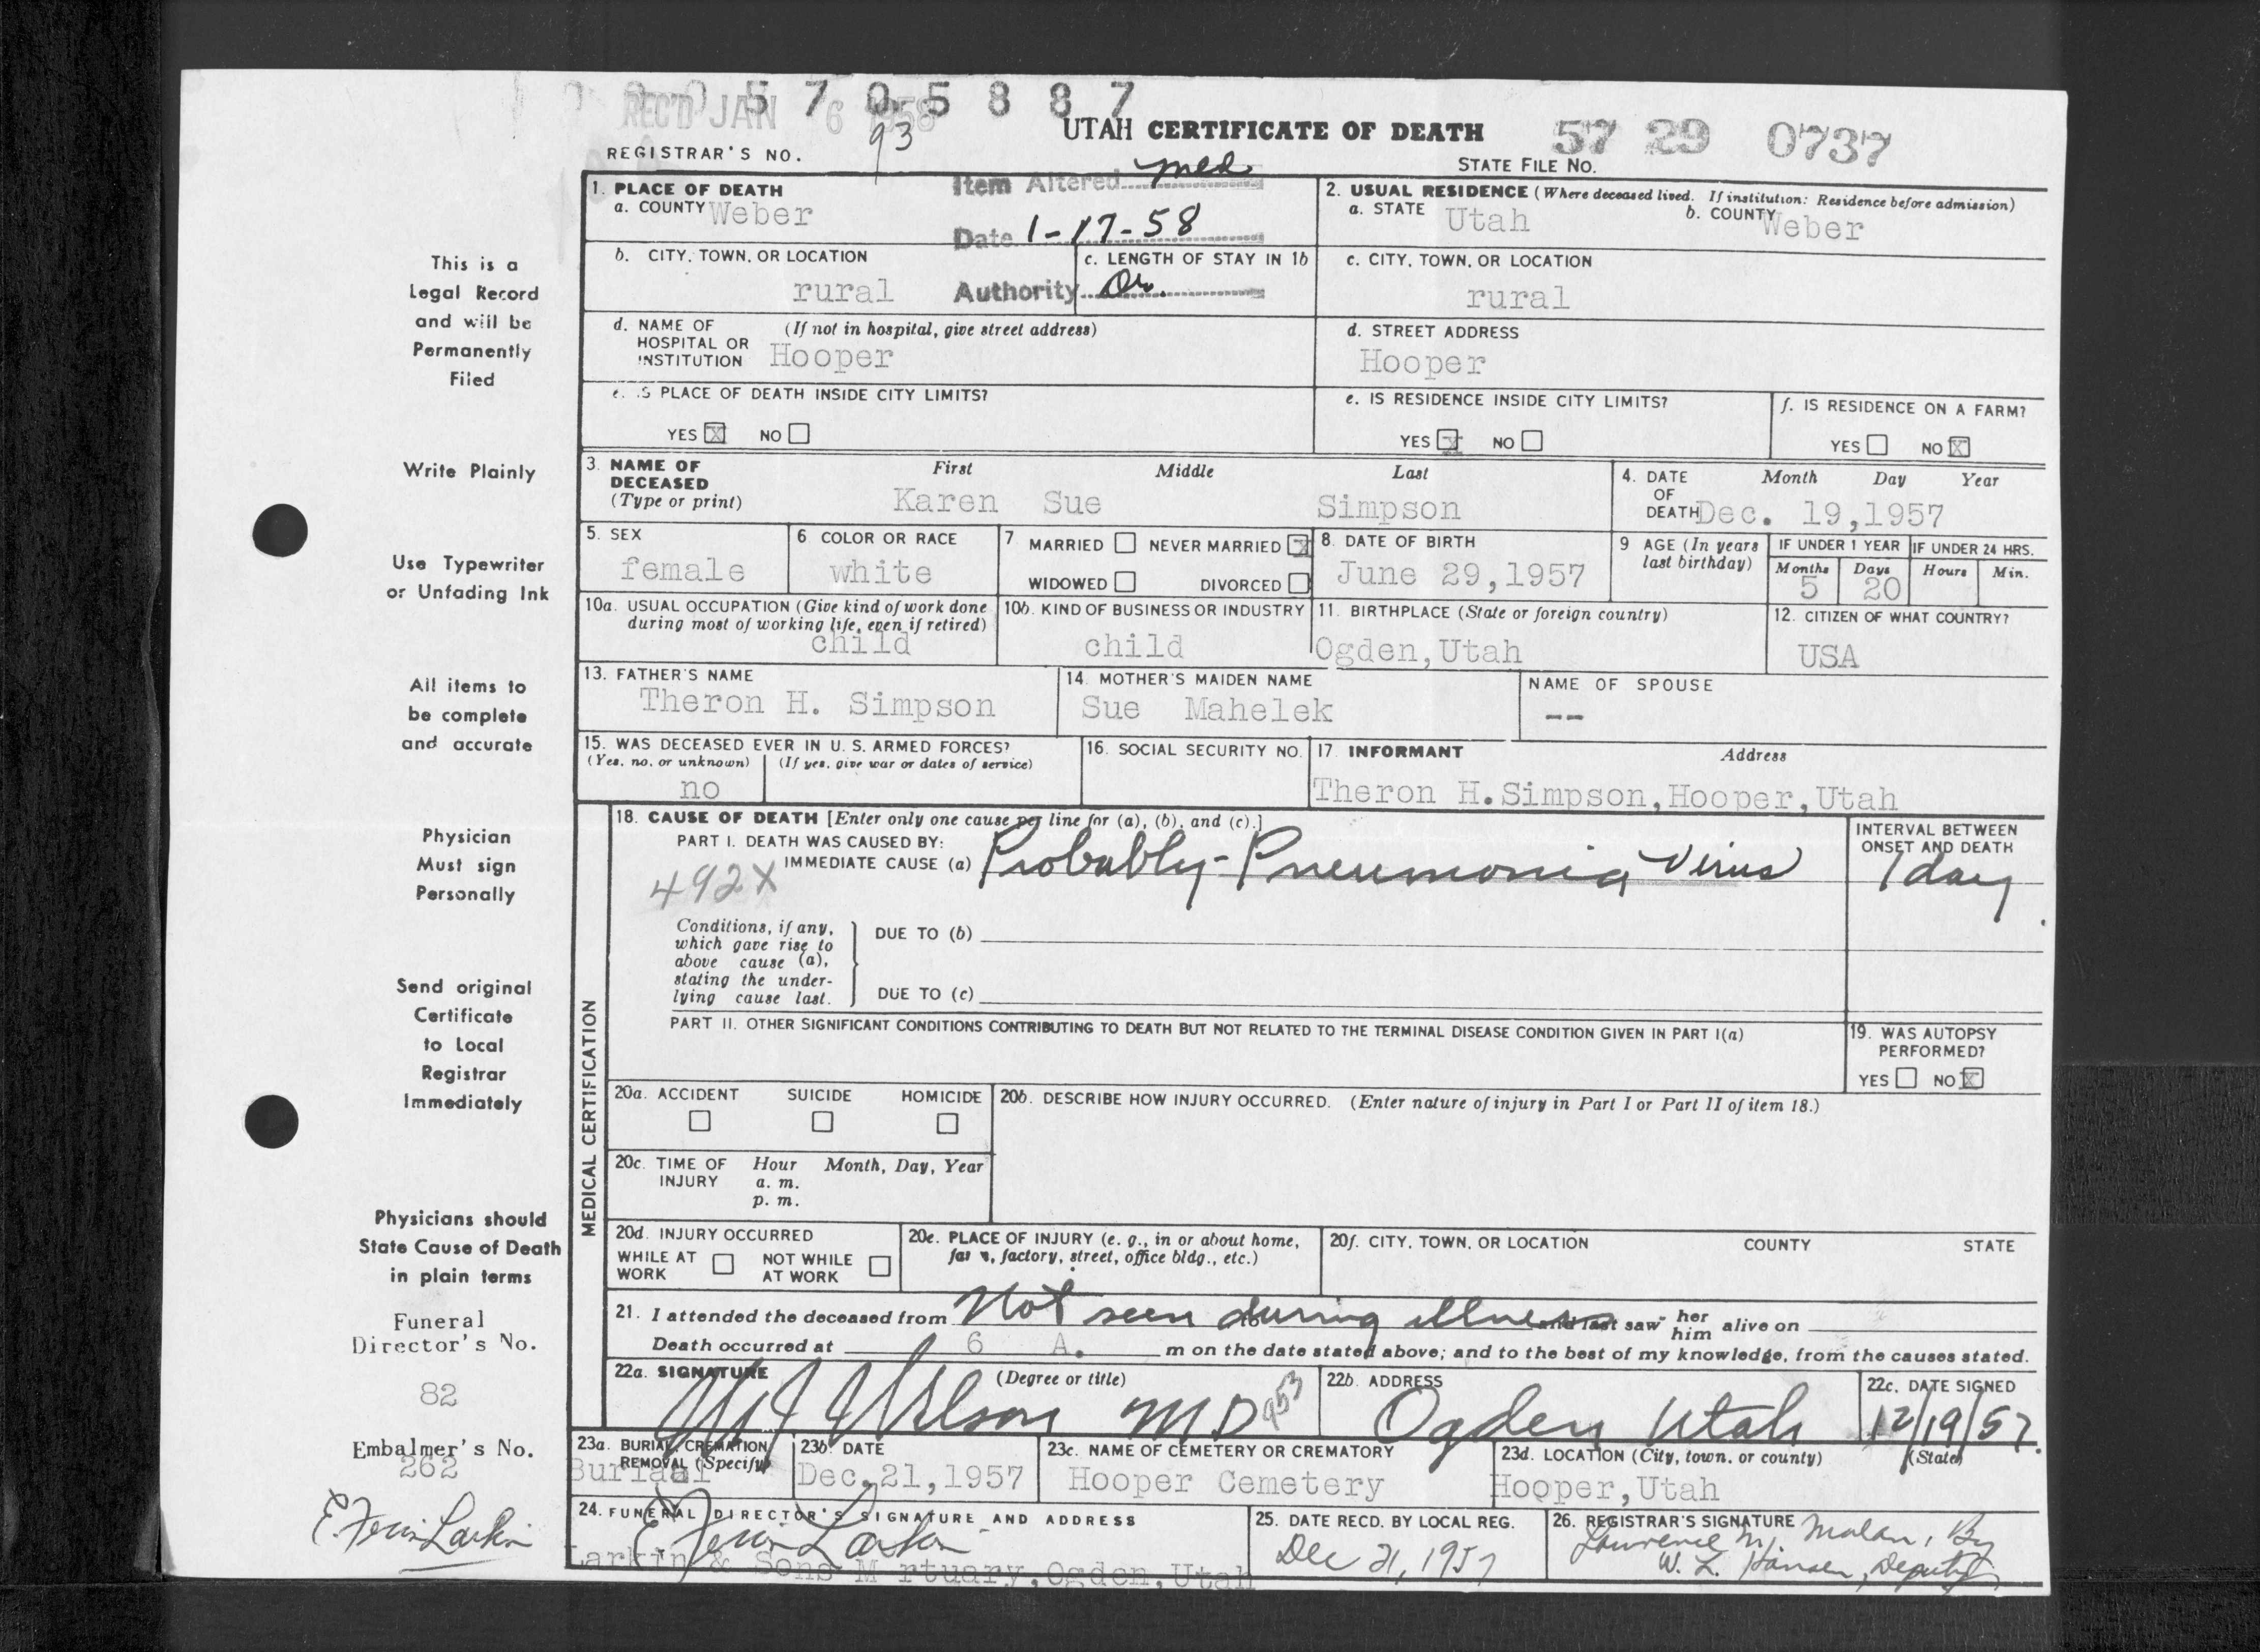 0 0 0 5 7 0 5 8 8 7
REC'D JAN 6 1958
REGISTRAR'S NO. 93
UTAH CERTIFICATE OF DEATH
57 29 0737
STATE FILE NO.
Item Altered med
Date 1-17-58
Authority Dr.
1. PLACE OF DEATH
a. COUNTY Weber
2. USUAL RESIDENCE (Where deceased lived. If institution: Residence before admission)
a. STATE Utah b. COUNTY Weber
b. CITY, TOWN, OR LOCATION
rural
c. LENGTH OF STAY IN 1b
c. CITY, TOWN, OR LOCATION
rural
d. NAME OF HOSPITAL OR INSTITUTION (If not in hospital, give street address)
Hooper
d. STREET ADDRESS
Hooper
e. IS PLACE OF DEATH INSIDE CITY LIMITS?
YES X NO
e. IS RESIDENCE INSIDE CITY LIMITS?
YES X NO
f. IS RESIDENCE ON A FARM?
YES NO X
3. NAME OF DECEASED (Type or print)
First Middle Last
Karen Sue Simpson
4. DATE OF DEATH Month Day Year
Dec. 19,1957
5. SEX
female
6 COLOR OR RACE
white
7 MARRIED NEVER MARRIED X
WIDOWED DIVORCED
8. DATE OF BIRTH
June 29,1957
9 AGE (In years last birthday)
IF UNDER 1 YEAR IF UNDER 24 HRS.
Months Days Hours Min.
5 20
10a. USUAL OCCUPATION (Give kind of work done during most of working life, even if retired)
child
10b. KIND OF BUSINESS OR INDUSTRY
child
11. BIRTHPLACE (State or foreign country)
Ogden,Utah
12. CITIZEN OF WHAT COUNTRY?
USA
13. FATHER'S NAME
Theron H. Simpson
14. MOTHER'S MAIDEN NAME
Sue Mahelek
NAME OF SPOUSE
--
15. WAS DECEASED EVER IN U. S. ARMED FORCES?
(Yes, no, or unknown) (If yes, give war or dates of service)
no
16. SOCIAL SECURITY NO.
17. INFORMANT Address
Theron H.Simpson,Hooper,Utah
MEDICAL CERTIFICATION
18. CAUSE OF DEATH [Enter only one cause per line for (a), (b), and (c).]
PART I. DEATH WAS CAUSED BY:
IMMEDIATE CAUSE (a) Probably-Pneumonia Virus
492X
INTERVAL BETWEEN ONSET AND DEATH
1 day
Conditions, if any, which gave rise to above cause (a), stating the underlying cause last.
DUE TO (b)
DUE TO (c)
PART II. OTHER SIGNIFICANT CONDITIONS CONTRIBUTING TO DEATH BUT NOT RELATED TO THE TERMINAL DISEASE CONDITION GIVEN IN PART I(a)
19. WAS AUTOPSY PERFORMED?
YES NO X
20a. ACCIDENT SUICIDE HOMICIDE
20b. DESCRIBE HOW INJURY OCCURRED. (Enter nature of injury in Part I or Part II of item 18.)
20c. TIME OF INJURY Hour Month, Day, Year
a. m.
p. m.
20d. INJURY OCCURRED
WHILE AT WORK NOT WHILE AT WORK
20e. PLACE OF INJURY (e. g., in or about home, farm, factory, street, office bldg., etc.)
20f. CITY, TOWN, OR LOCATION COUNTY STATE
21. I attended the deceased from Not seen during illness and last saw her him alive on
Death occurred at 6 A. m on the date stated above; and to the best of my knowledge, from the causes stated.
22a. SIGNATURE (Degree or title)
Wilson MD 953
22b. ADDRESS
Ogden Utah
22c. DATE SIGNED
12/19/57.
23a. BURIAL, CREMATION, REMOVAL (Specify)
Burial
23b. DATE
Dec.21,1957
23c. NAME OF CEMETERY OR CREMATORY
Hooper Cemetery
23d. LOCATION (City, town, or county) (State)
Hooper,Utah
24. FUNERAL DIRECTOR'S SIGNATURE AND ADDRESS
Larkin
Larkin & Sons M rtuary,Ogden,Utah
25. DATE RECD. BY LOCAL REG.
Dec 21, 1957
26. REGISTRAR'S SIGNATURE
Lawrence M. Malan, By
W. L. Hansen, Deputy
This is a
Legal Record
and will be
Permanently
Filed
Write Plainly
Use Typewriter
or Unfading Ink
All items to
be complete
and accurate
Physician
Must sign
Personally
Send original
Certificate
to Local
Registrar
Immediately
Physicians should
State Cause of Death
in plain terms
Funeral
Director's No.
82
Embalmer's No.
262
Larkin